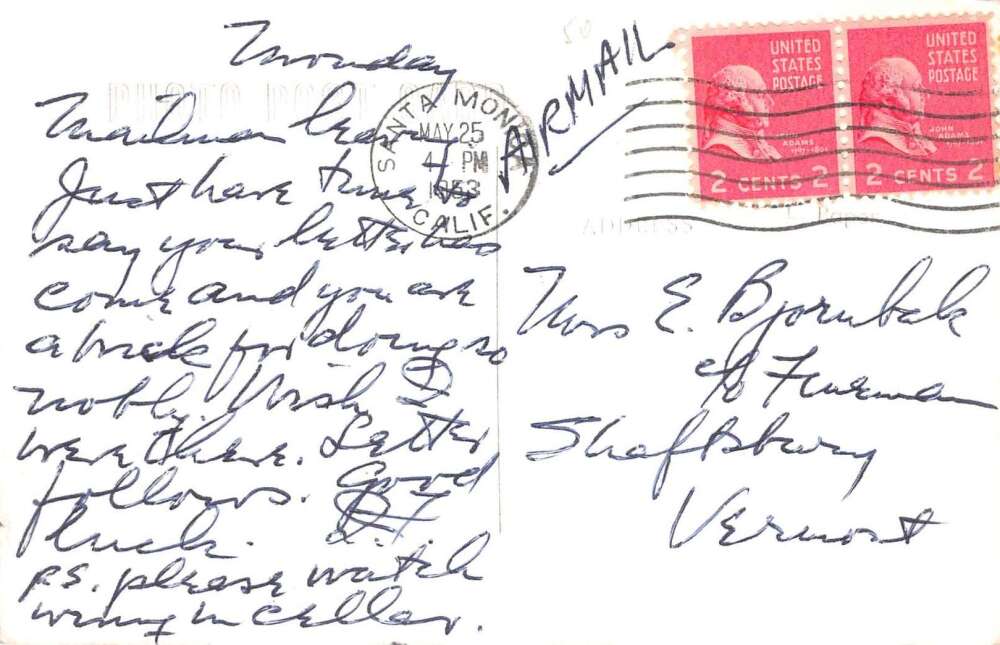 Monday
PHOTO POST CARD
Mailman here.
Just have time to
say your letter has
come and you are
a brick for doing so
nobly. Wish I
were there. Letter
follows. Good
luck.
P.S. please watch
wiring in cellar.
SANTA MONICA
MAY 25
4 PM
1953
CALIF.
AIRMAIL
50
UNITED
STATES
POSTAGE
JOHN
ADAMS
2 CENTS 2
UNITED
STATES
POSTAGE
JOHN ADAMS
2 CENTS 2
ADDRESS
Paper
Mrs E. Bjornbak
c/o Furman
Shaftsbury
Vermont